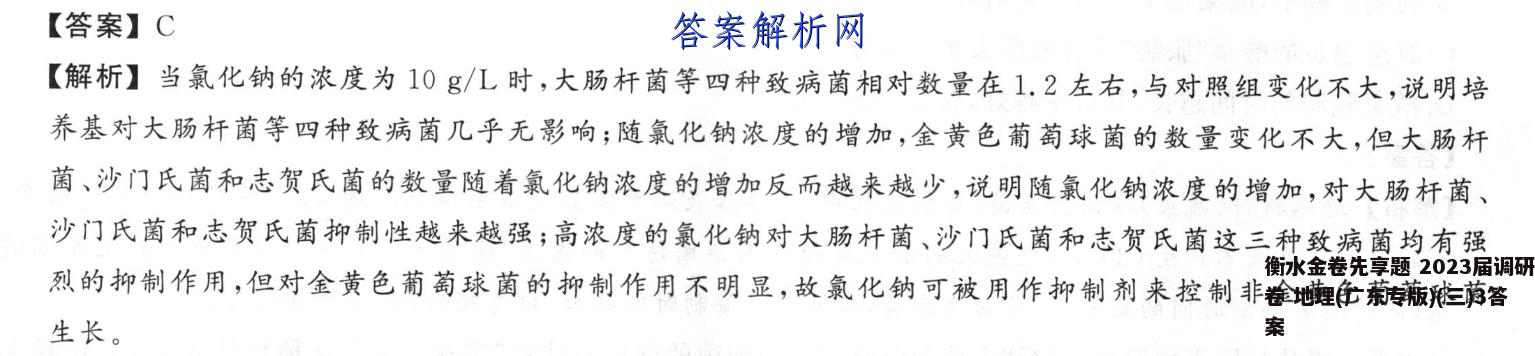 【答案】C
答案解析网
【解析】当氯化钠的浓度为 10 g/L 时,大肠杆菌等四种致病菌相对数量在 1.2 左右,与对照组变化不大,说明培
养基对大肠杆菌等四种致病菌几乎无影响;随氯化钠浓度的增加,金黄色葡萄球菌的数量变化不大,但大肠杆
菌、沙门氏菌和志贺氏菌的数量随着氯化钠浓度的增加反而越来越少,说明随氯化钠浓度的增加,对大肠杆菌、
沙门氏菌和志贺氏菌抑制性越来越强;高浓度的氯化钠对大肠杆菌、沙门氏菌和志贺氏菌这三种致病菌均有强
烈的抑制作用,但对金黄色葡萄球菌的抑制作用不明显,故氯化钠可被用作抑制剂来控制非金黄色葡萄球菌
生长。
衡水金卷先享题 2023届调研
卷 地理(广东专版)(三)3答
案